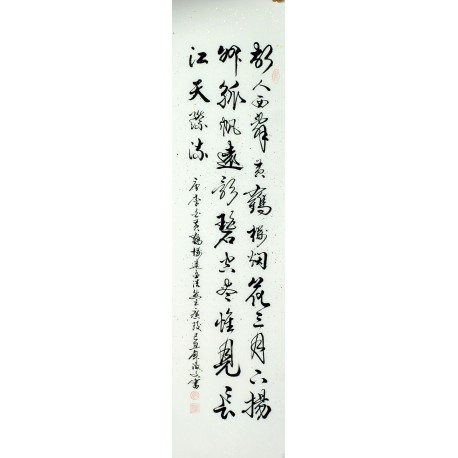 故人西辞黄鶴楼烟花三月下揚
州孤帆遠影碧空尽惟見長
江天際流
唐李白黄鶴楼送孟浩然之廣陵己丑書